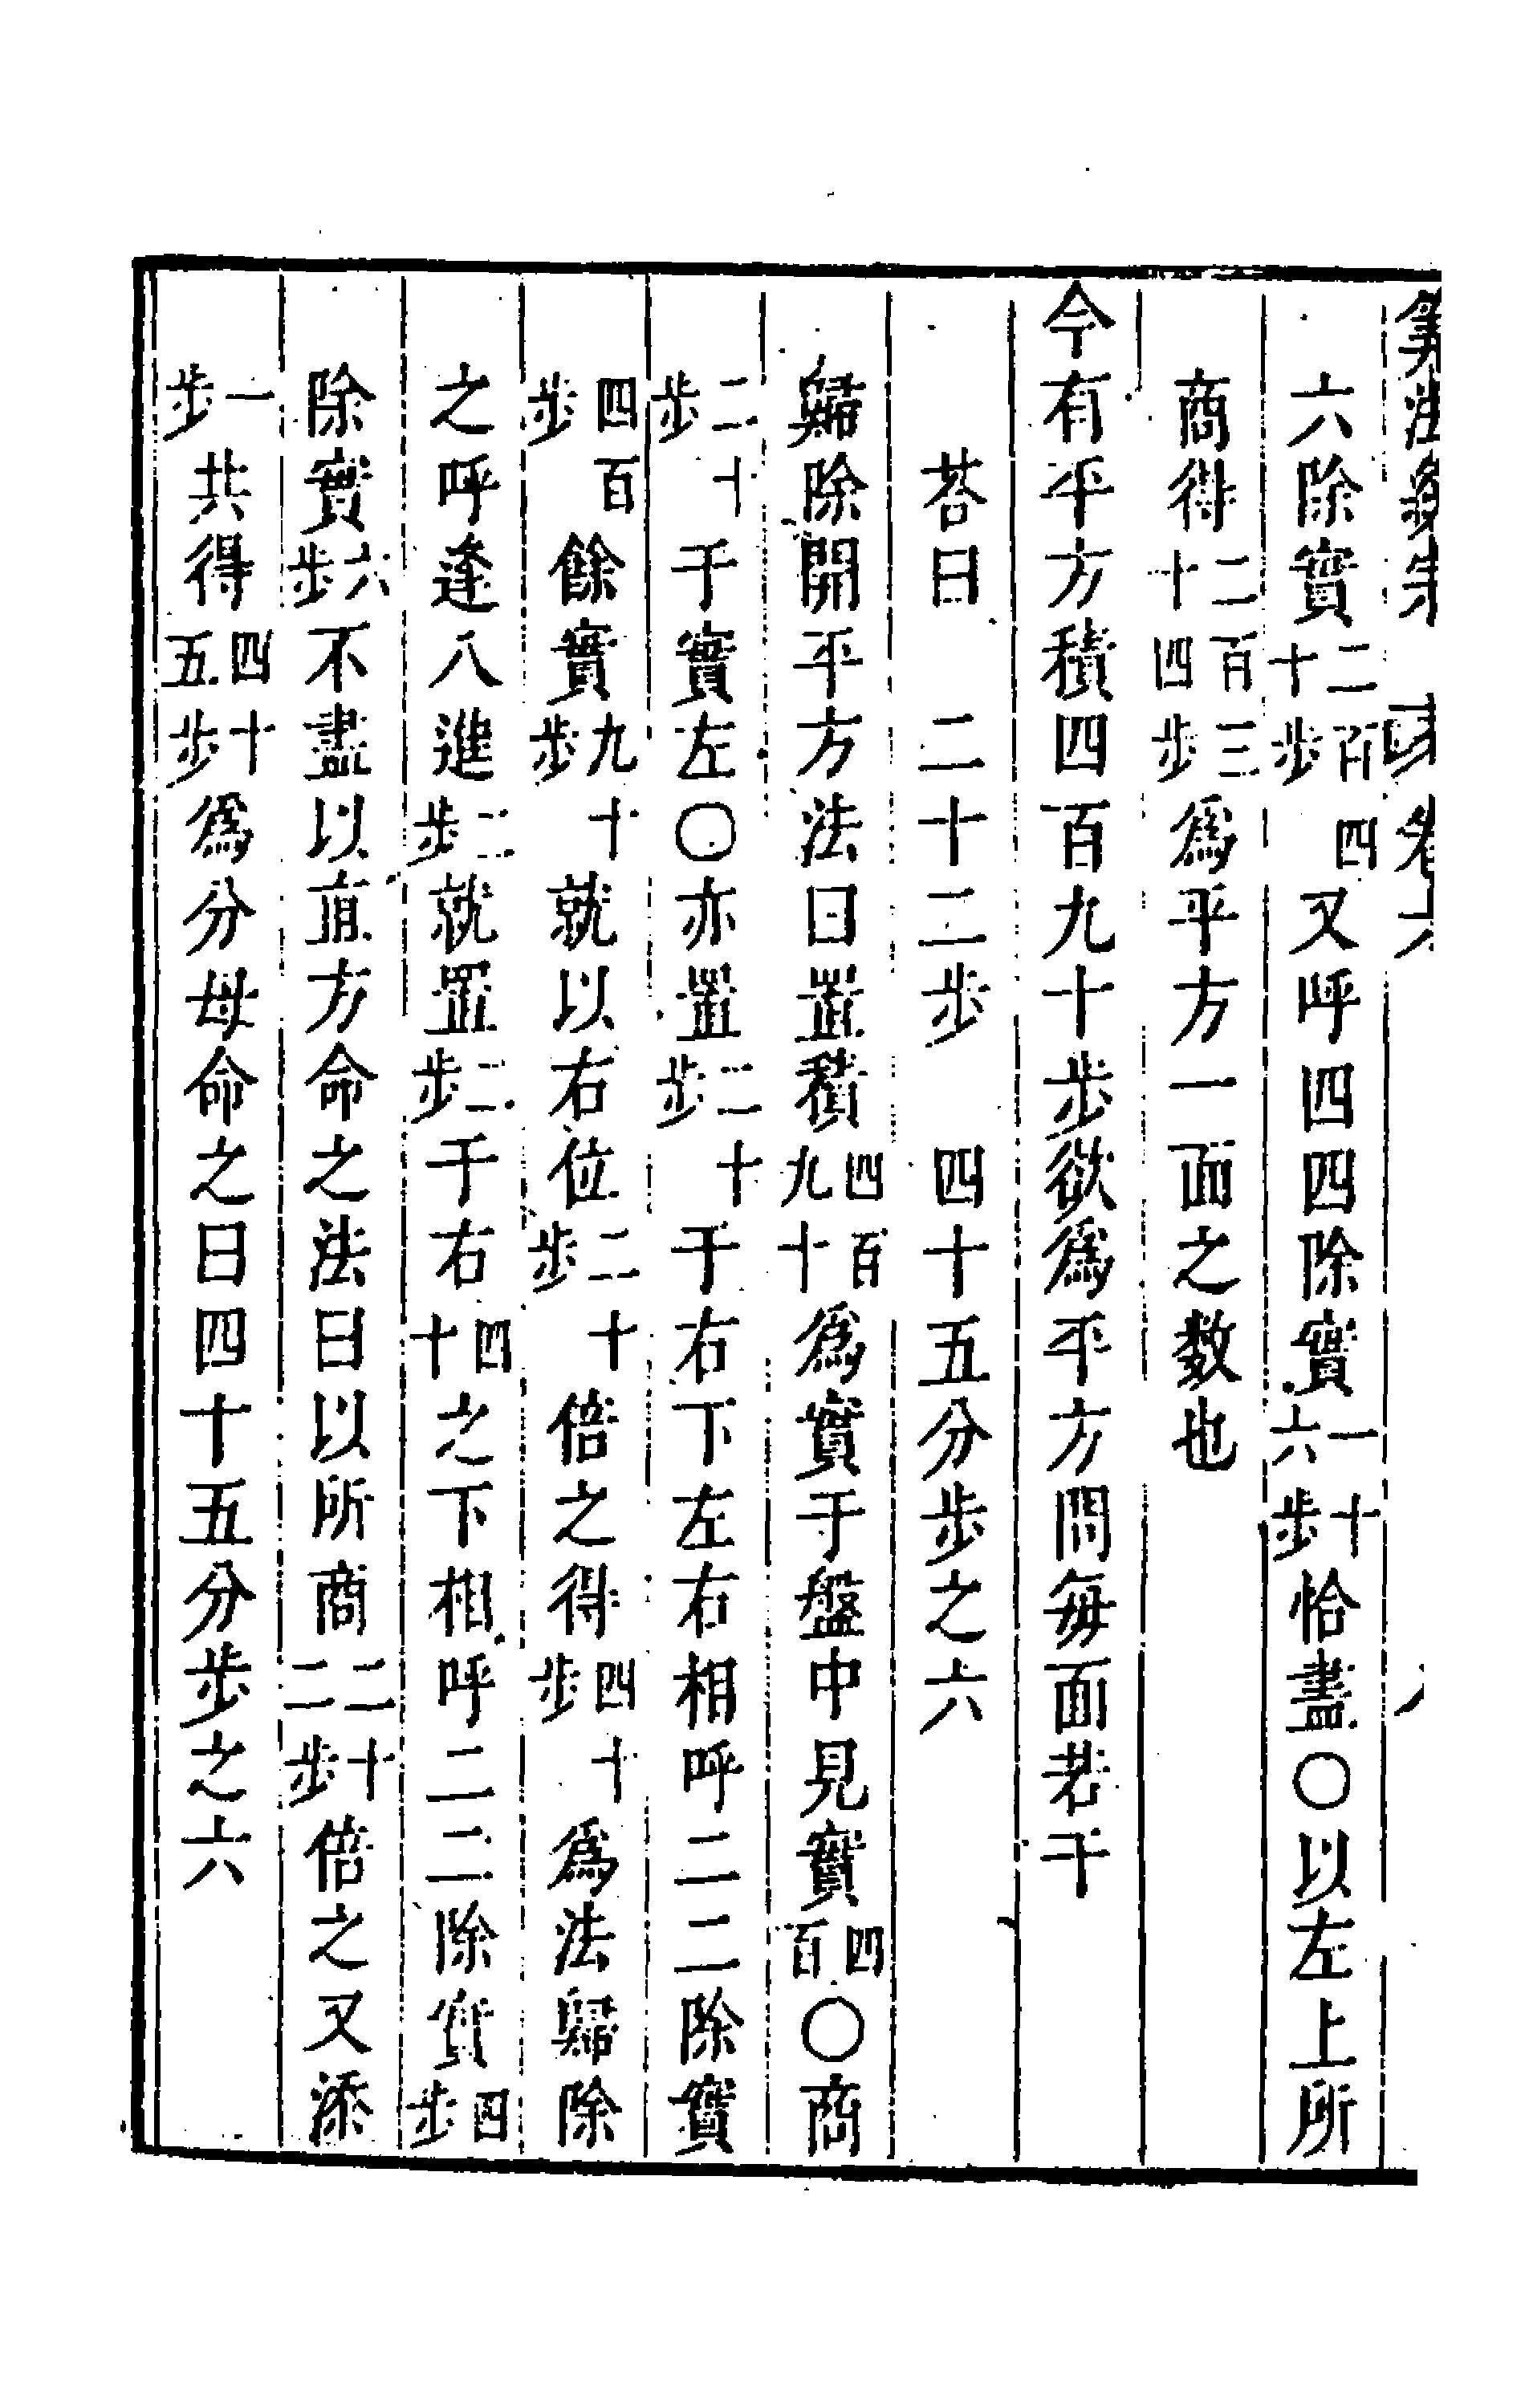 算法纂宗　卷六
六除實二百四十步又呼四四除實一十六步恰盡〇以左上所
商得二百三十四步爲平方一面之数也
今有平方積四百九十步欲爲平方問每面若干
荅曰　二十二步　四十五分步之六
歸除開平方法曰置積四百九十爲實于盤中見實四百〇商
二十步于實左〇亦置二十步于右下左右相呼二二除實
四百步餘實九十步就以右位二十步倍之得四十步爲法歸除
之呼逢八進二步就置二步于右四十之下相呼二二除實四步
除實六步不盡以直方命之法曰以所商二十二步倍之又添
一步共得四十五步爲分母命之曰四十五分步之六